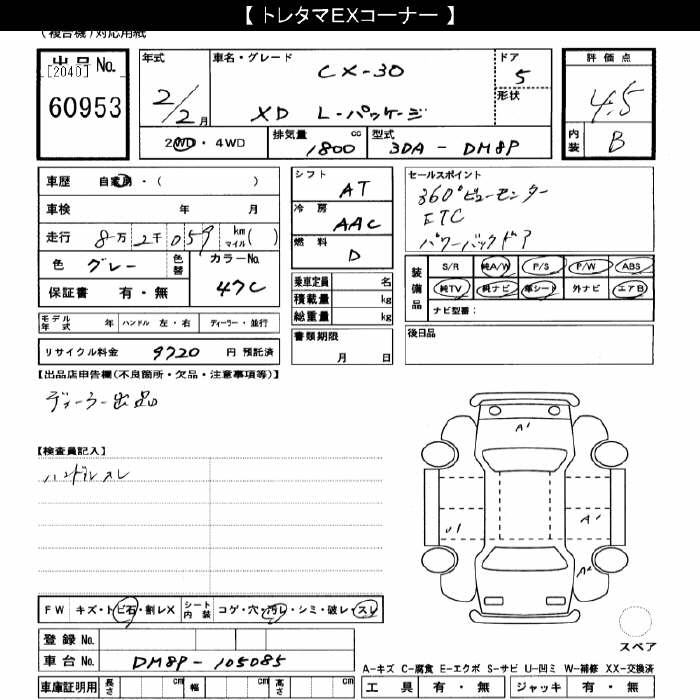 【 トレタマEXコーナー 】
(複合機)対応用紙
出品 No.
[2040]
60953
年式
2/2月
車名・グレード
CX-30
XD L-パッケージ
ドア
5
形状
評価点
4.5
内装
B
2WD・4WD
排気量
1800 cc
型式
3DA - DM8P
車歴 自家用・( )
車検 年 月
走行 8万2千059 km マイル( )
色 グレー 色替 カラーNo. 47C
保証書 有・無
モデル年式 年 ハンドル 左・右 ディーラー・並行
リサイクル料金 9720 円 預託済
シフト
AT
冷房
AAC
燃料
D
乗車定員 名
積載量 kg
総重量 kg
書類期限
月 日
セールスポイント
360°ビューモニター
ETC
パワーバックドア
装備品
S/R 純A/W P/S P/W ABS
純TV 純ナビ 革シート 外ナビ エアB
ナビ型番:
後日品
【出品店申告欄(不良箇所・欠品・注意事項等)】
ディーラー出品
【検査員記入】
ハンドルスレ
A'
U1
A'
スペア
FW キズ・トビ石・割レX シート内装 コゲ・穴・汚レ・シミ・破レ・スレ
登録 No.
車台 No. DM8P-105085
車庫証明用 長さ cm 幅 cm 高さ cm
A-キズ C-腐食 E-エクボ S-サビ U-凹ミ W-補修 XX-交換済
工具 有・無 ジャッキ 有・無